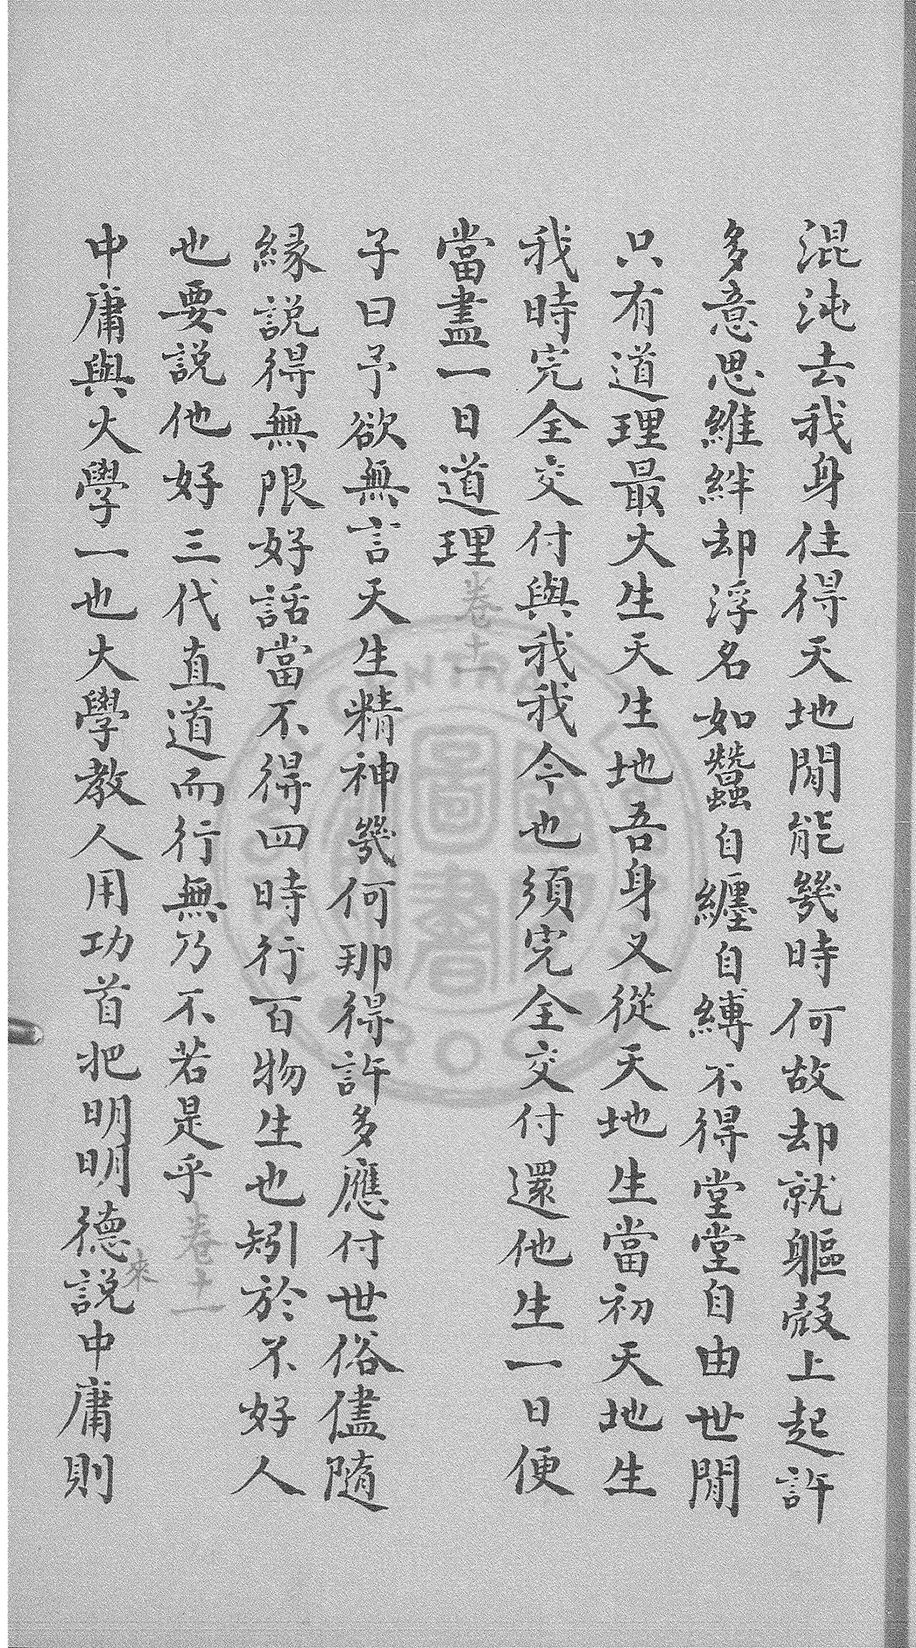 混沌去我身住得天地閒能幾時何故却就軀殼上起許
多意思維絆却浮名如蠶自纏自縛不得堂堂自由世閒
只有道理最大生天生地吾身又從天地生當初天地生
我時完全交付與我我今也須完全交付還他生一日便
當盡一日道理 卷十一
子曰予欲無言天生精神幾何那得許多應付世俗儘隨
緣說得無限好話當不得四時行百物生也矧於不好人
也要說他好三代直道而行無乃不若是乎 卷十一
中庸與大學一也大學教人用功首把明明德說中庸則
來
CENTRAL
ROC
圖書